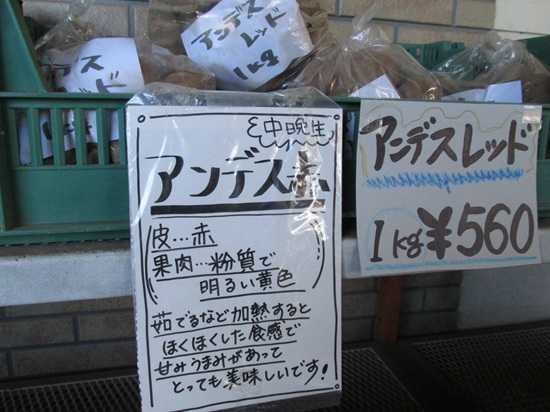 アンデス
レッド
1kg
中晩生
アンデス赤
皮…赤
果肉…粉質で
明るい黄色
茹でるなど加熱すると
ほくほくした食感で
甘みうまみがあって
とっても美味しいです!
アンデスレッド
1kg ¥560